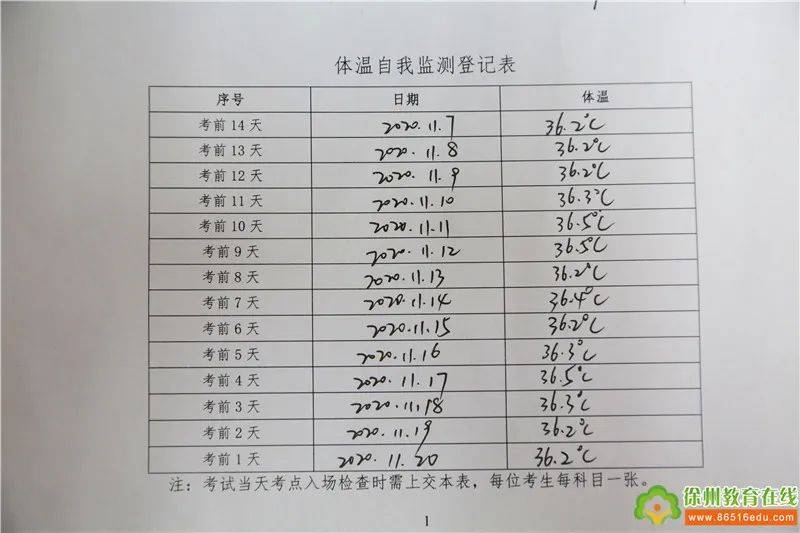 体温自我监测登记表
序号 日期 体温
考前14天 2020.11.7 36.2℃
考前13天 2020.11.8 36.2℃
考前12天 2020.11.9 36.2℃
考前11天 2020.11.10 36.3℃
考前10天 2020.11.11 36.5℃
考前9天 2020.11.12 36.5℃
考前8天 2020.11.13 36.2℃
考前7天 2020.11.14 36.4℃
考前6天 2020.11.15 36.2℃
考前5天 2020.11.16 36.3℃
考前4天 2020.11.17 36.5℃
考前3天 2020.11.18 36.3℃
考前2天 2020.11.19 36.2℃
考前1天 2020.11.20 36.2℃
注：考试当天考点入场检查时需上交本表，每位考生每科目一张。
1
徐州教育在线
www.86516edu.com